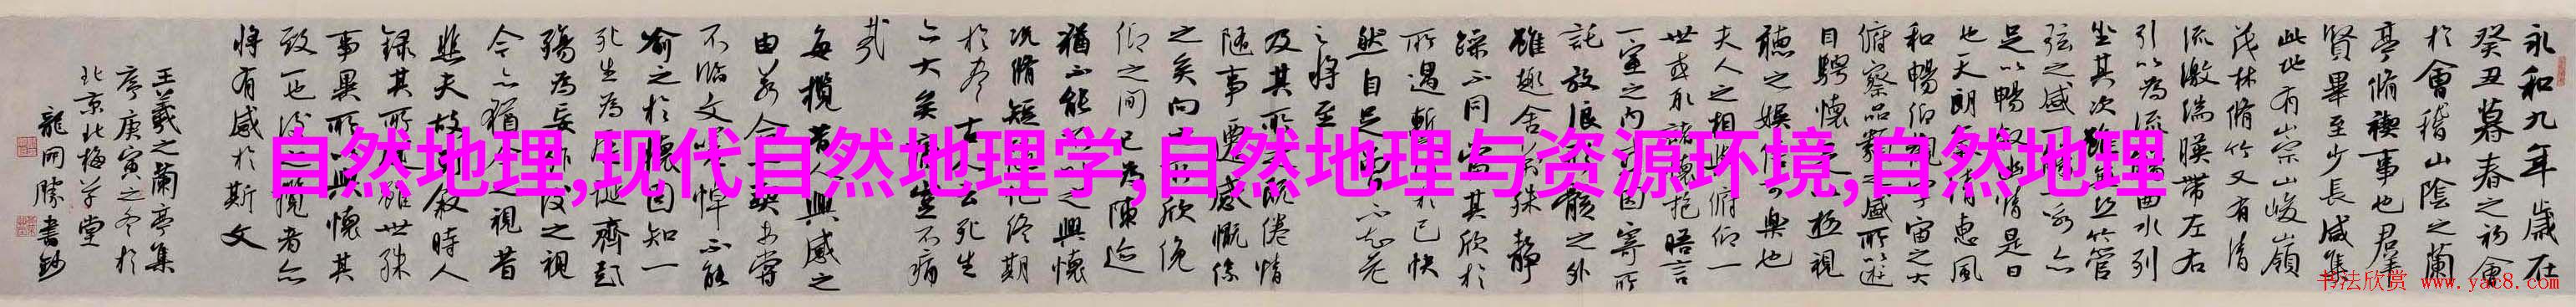 自然地理,现代自然地理学,自然地理与资源环境,自然地理
永和九年歲在
癸丑暮春之初會
於會稽山陰之蘭
亭脩禊事也群
賢畢至少長咸集
此地有崇山峻嶺
茂林脩竹又有清
流激湍暎帶左右
引以為流曲水列
坐其次雖管
弦之盛一亦
足以暢叙幽情是日
也天朗清惠風
和暢仰宇宙之大
俯察品類之盛所以遊
目騁懷足極視
聽之娛信可樂也
夫人之相與俯仰一
世或取諸懷抱晤言
一室之內因寄所
託放浪骸之外
雖趣舍萬殊靜
躁不同當其欣於
所遇暫於己快
然自足不知老
之將至
及其所之既倦情
隨事遷感慨係
之矣向欣俛
仰之間已為陳迹
猶不能之興懷
況脩短化終期
於盡古人云死生
亦大矣豈不痛
哉
每攬昔人興感之
由若合一契未嘗
不臨文悼不能
喻之於懷固知一
死生為誕齊彭
殤為妄作後之視
今亦猶今之視昔
悲夫故叙時人
錄其所雖世殊
事異所以興懷其
致一也後攬者亦
將有感於斯文
王羲之蘭亭集
序庚寅之冬於
北京北梅草堂
龍開勝書鈔
书法欣赏 www.yac8.com